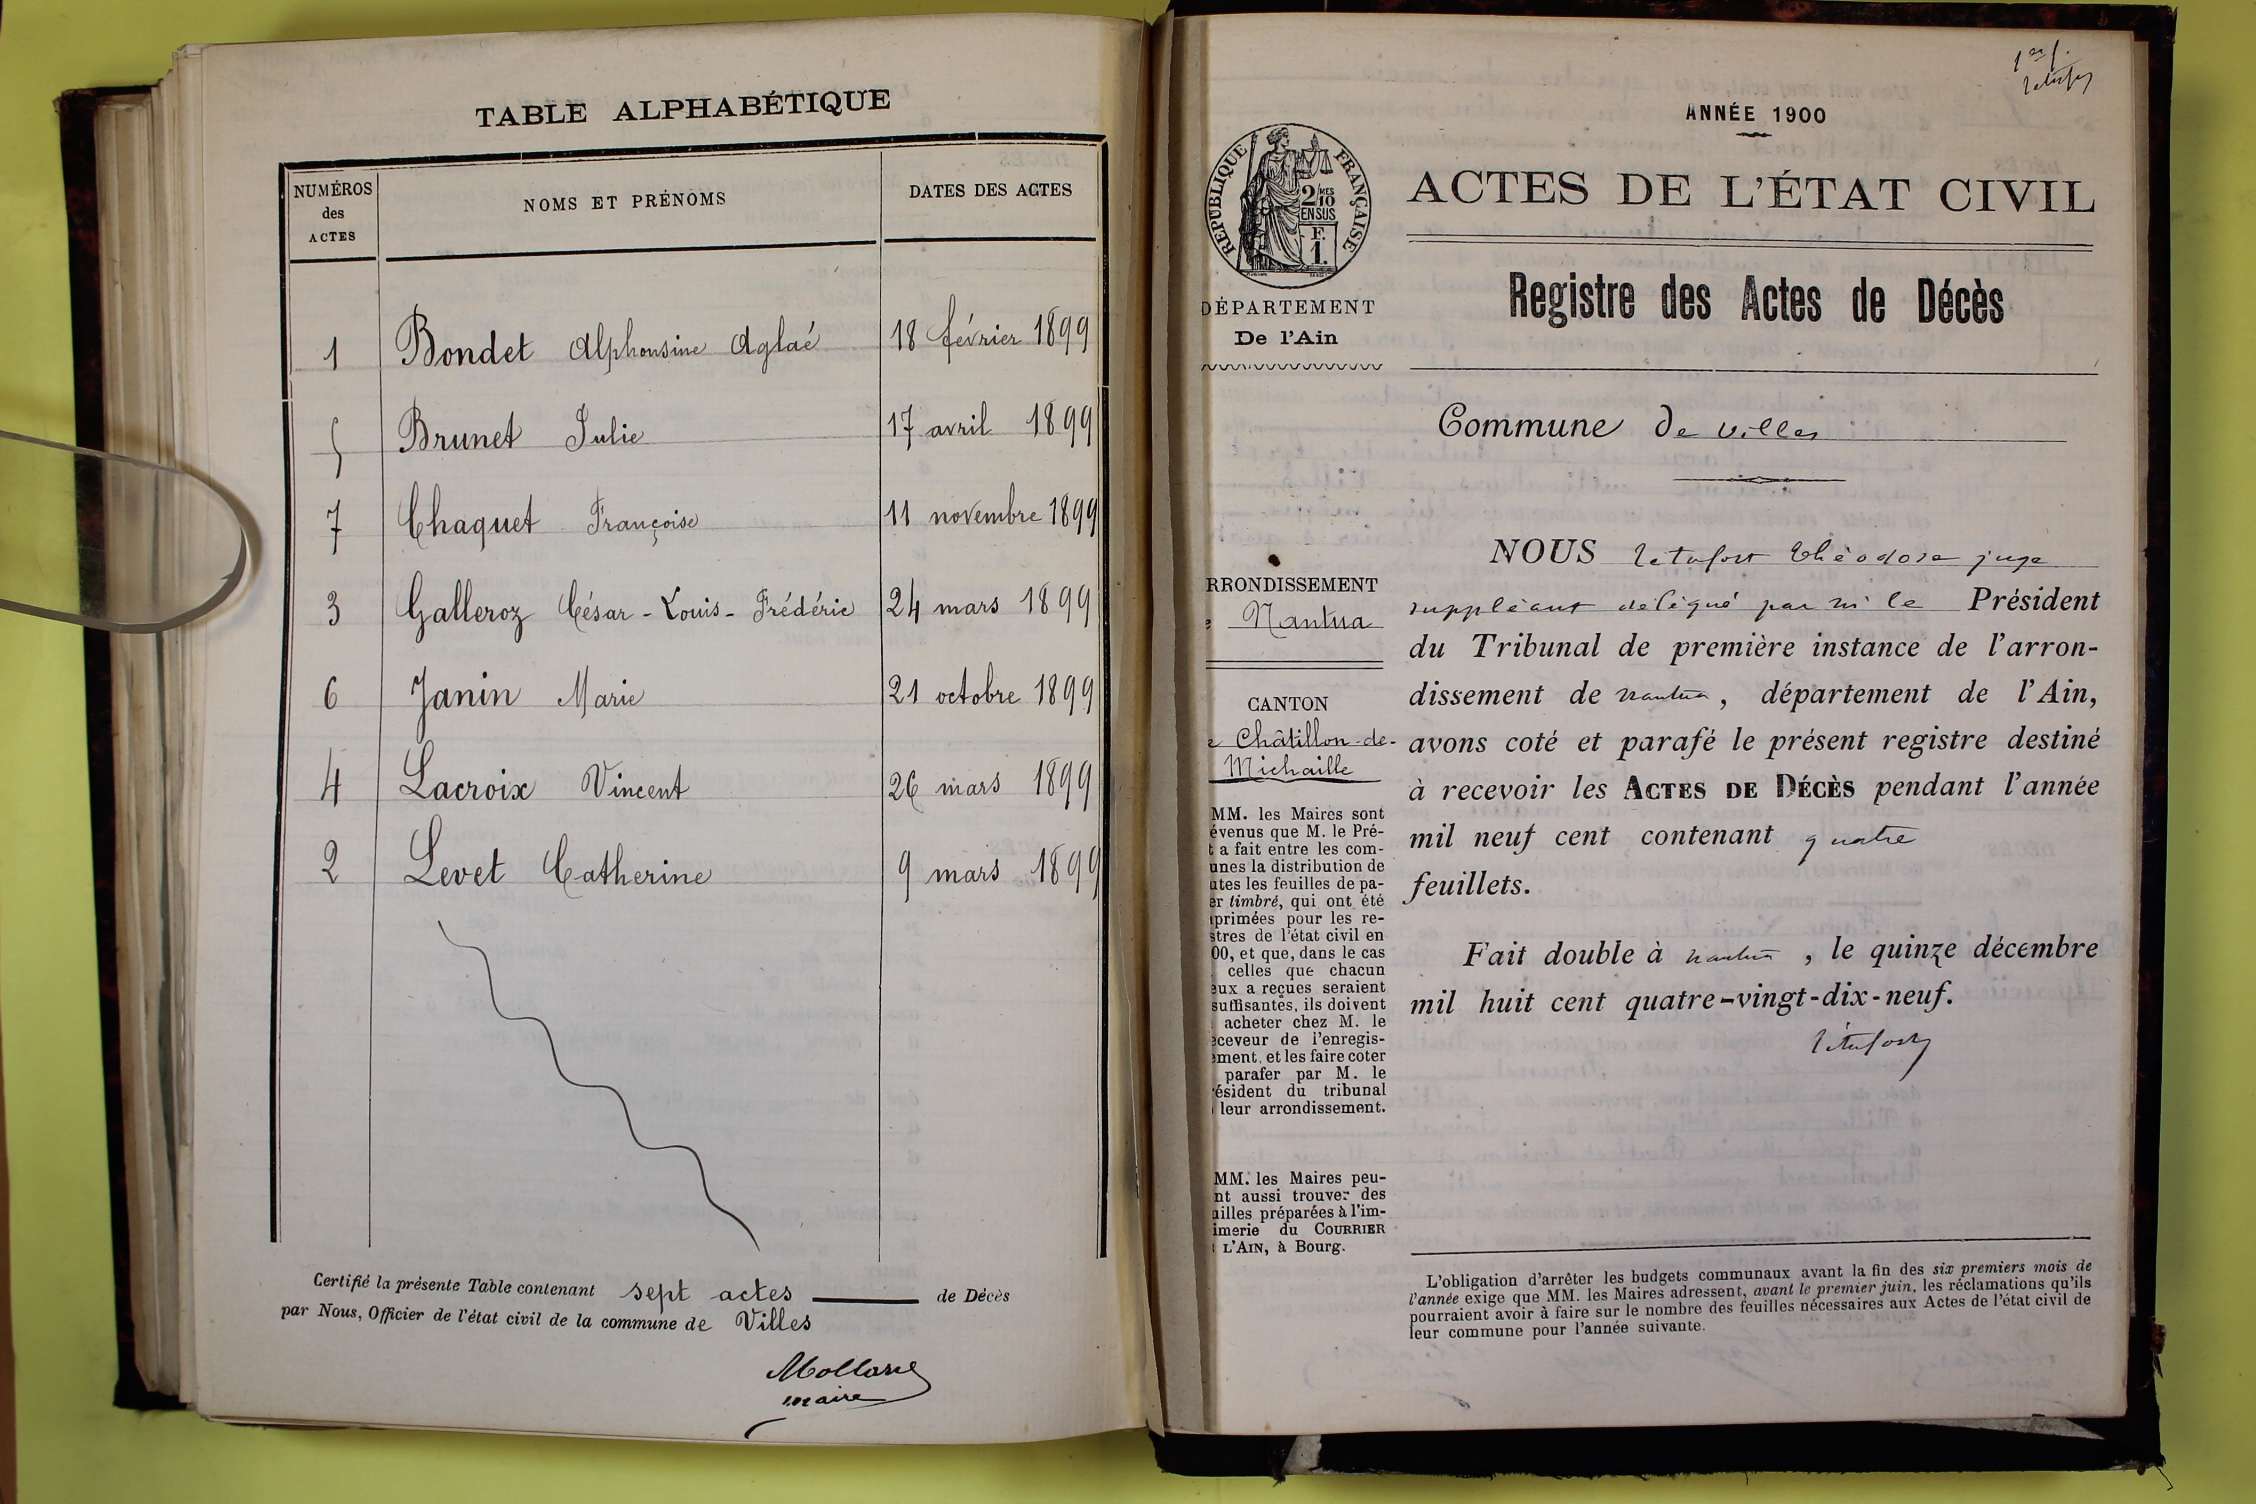 TABLE ALPHABÉTIQUE
NUMÉROS des ACTES
NOMS ET PRÉNOMS
DATES DES ACTES
1 Bondet Alphonsine Aglaé 18 février 1899
5 Brunet Julie 17 avril 1899
7 Chaquet Françoise 11 novembre 1899
3 Galleroz César-Louis-Frédéric 24 mars 1899
6 Janin Marie 21 octobre 1899
4 Lacroix Vincent 26 mars 1899
2 Levet Catherine 9 mars 1899
Certifié la présente Table contenant sept actes de Décès
par Nous, Officier de l'état civil de la commune de Villes
maire
ANNÉE 1900
RÉPUBLIQUE FRANÇAISE
2/10 MES
EN SUS
F.
1.
ACTES DE L'ÉTAT CIVIL
Registre des Actes de Décès
DÉPARTEMENT
De l'Ain
Commune de Villes
RRONDISSEMENT
e Nantua
CANTON
e Châtillon-de-
Michaille
MM. les Maires sont
évenus que M. le Pré-
t a fait entre les com-
unes la distribution de
utes les feuilles de pa-
er timbré, qui ont été
primées pour les re-
stres de l'état civil en
00, et que, dans le cas
celles que chacun
eux a reçues seraient
suffisantes, ils doivent
acheter chez M. le
eceveur de l'enregis-
ement, et les faire coter
parafer par M. le
résident du tribunal
leur arrondissement.
MM. les Maires peu-
nt aussi trouver des
uilles préparées à l'im-
imerie du COURRIER
L'AIN, à Bourg.
NOUS Théodore juge
suppléant délégué par M le Président
du Tribunal de première instance de l'arron-
dissement de Nantua, département de l'Ain,
avons coté et parafé le présent registre destiné
à recevoir les ACTES DE DÉCÈS pendant l'année
mil neuf cent contenant quatre
feuillets.
Fait double à Nantua, le quinze décembre
mil huit cent quatre-vingt-dix-neuf.
L'obligation d'arrêter les budgets communaux avant la fin des six premiers mois de
l'année exige que MM. les Maires adressent, avant le premier juin, les réclamations qu'ils
pourraient avoir à faire sur le nombre des feuilles nécessaires aux Actes de l'état civil de
leur commune pour l'année suivante.